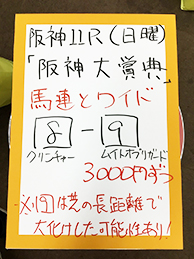 阪神11R(日曜)
「阪神大賞典」
馬連とワイド
8-9
クリンチャー ムイトオブリガード
3000円ずつ
※9は芝の長距離で
大化けした可能性あり!